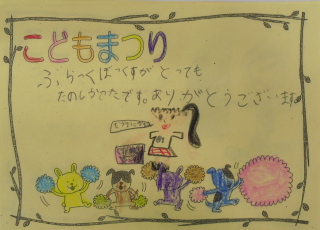 こどもまつり
ぶらっくぼっくすが とっても
たのしかったです。ありがとうございます。